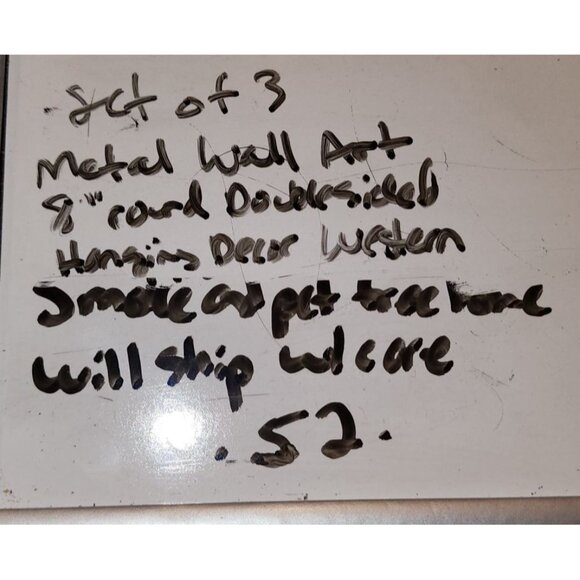 Set of 3
Metal Wall Art
8" round Doublesided
Hanging Decor Western
Smoke and pet free home
Will ship w/ care
.52.